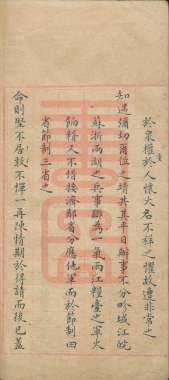 於衆權重於人懷大名不祥之懼故遭非常之
知遇彌切爾位之靖共其平日辦事不分畛域江皖
蘇浙兩湖之兵事聯為一氣兩江糧臺之軍火
餉糈人不惜接濟鄰省分應他軍而於節制四
省節制三省之
命則堅不居敢不憚一再陳情期於得請而後已蓋